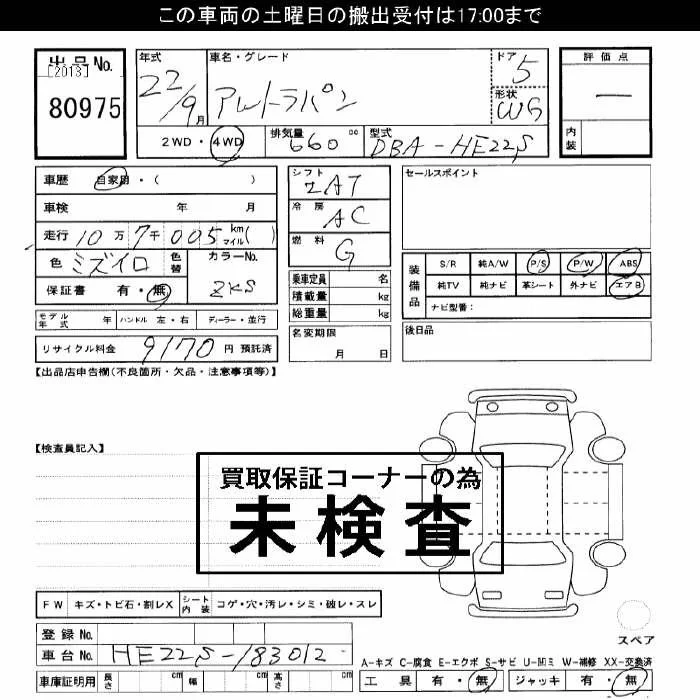 この車両の土曜日の搬出受付は17:00まで
出品No.
[2013]
80975
年式
22/9月
車名・グレード
アルトラパン
ドア
5
形状
WG
2WD・4WD
排気量
660 cc
型式
DBA-HE22S
評価点
—
内装
車歴 自家用・( )
車検 年 月
走行 10万 7千 005 km マイル( )
色 ミズイロ 色替
カラーNo.
ZKS
保証書 有・無
シフト
2AT
冷房
AC
燃料
G
乗車定員 名
積載量 kg
総重量 kg
名変期限
月 日
セールスポイント
装備品
S/R 純A/W P/S P/W ABS
純TV 純ナビ 革シート 外ナビ エアB
ナビ型番:
後日品
モデル年式 年 ハンドル 左・右 ディーラー・並行
リサイクル料金 9170 円 預託済
【出品店申告欄(不良箇所・欠品・注意事項等)】
【検査員記入】
買取保証コーナーの為
未検査
FW キズ・トビ石・割レX シート内装 コゲ・穴・汚レ・シミ・破レ・スレ
登録No.
車台No. HE22S-183012
車庫証明用 長さ cm 幅 cm 高さ cm
スペア
A-キズ C-腐食 E-エクボ S-サビ U-凹ミ W-補修 XX-交換済
工具 有・無 ジャッキ 有・無